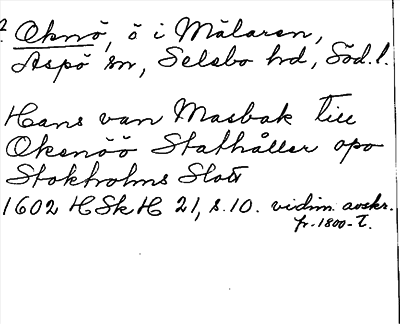 ? Oknö, ö i Mälaren,
Aspö sn, Selebo hd, Söd.l.
Hans van Masbak till
Oksnöö Stathåller opo
Stokholms Slott
1602 HSkH 21, s. 10. vidim. avskr.
fr. 1800-t.